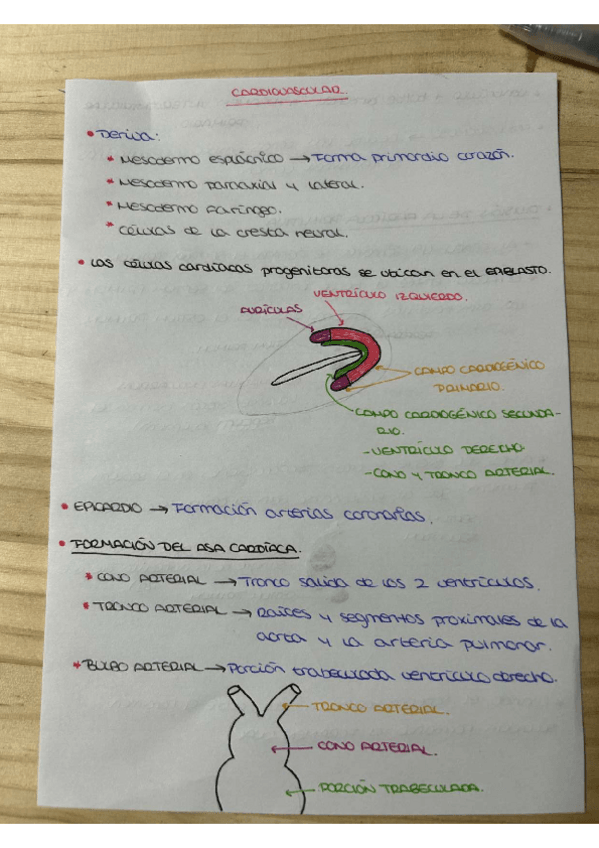 CARDIOVASCULAR.
• Deriva:
* Mesodermo esplácnico → Forma primordio corazón.
* Mesodermo paraxial y lateral.
* Mesodermo Faríngeo.
* Células de la cresta neural.
• Las células cardíacas progenitoras se ubican en el EPIBLASTO.
VENTRÍCULO IZQUIERDO.
AURÍCULAS
CAMPO CARDIOGÉNICO
PRIMARIO.
CAMPO CARDIOGÉNICO SECUNDA-
RIO.
-VENTRÍCULO DERECHO
-CONO Y TRONCO ARTERIAL.
• EPICARDIO → Formación arterias coronarias.
• FORMACIÓN DEL ASA CARDÍACA.
* CONO ARTERIAL → Tronco salida de los 2 ventrículos.
* TRONCO ARTERIAL → Raíces y segmentos proximales de la
aorta y la arteria pulmonar.
* BULBO ARTERIAL → Porción trabeculada ventrículo derecho.
TRONCO ARTERIAL.
CONO ARTERIAL.
PORCIÓN TRABECULADA.